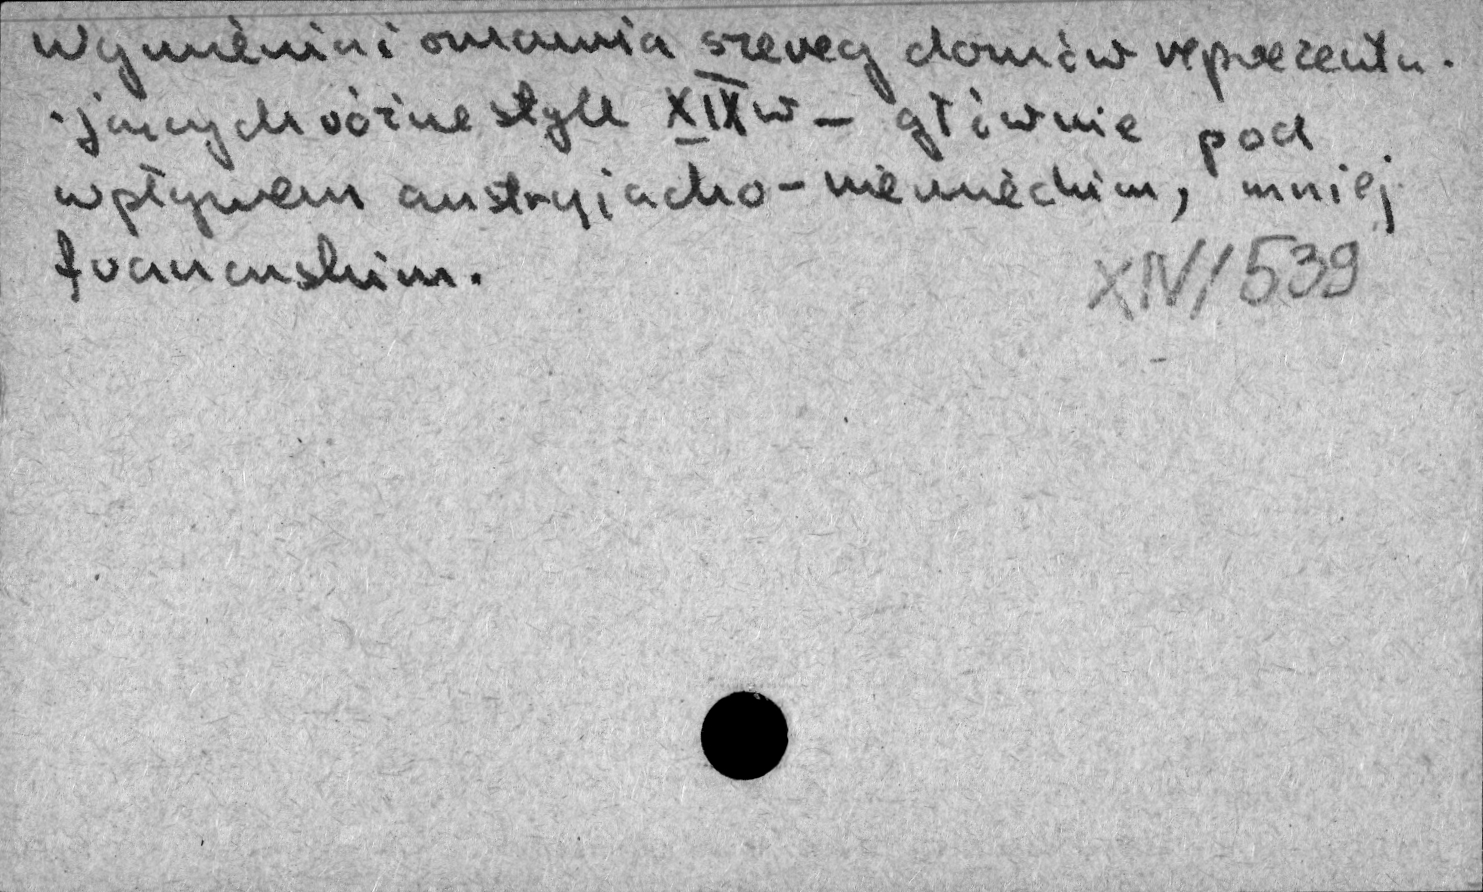 Wymienia i omawia szereg domów reprezentu-
-jących różne style XIX w – głównie pod
wpływem austryjacko-niemieckim, mniej
francuskim.
XIV/539